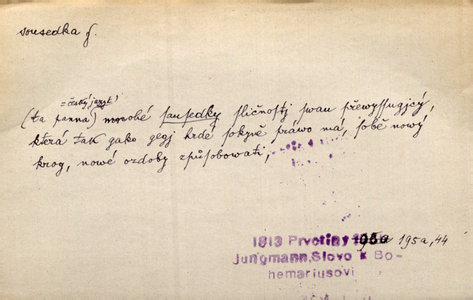 sousedka f.
= český jazyk)
(ta panna) mnohé sausedky sličnostj swau přewyssugjcý,
která tak gako gegj hrdé sokyně práwo má, sobě nowý
krog, nowé ozdoby způsobowati,
1813 Prvotiny 195a, 44
Jungmann, Slovo k Bo-
hemariusovi